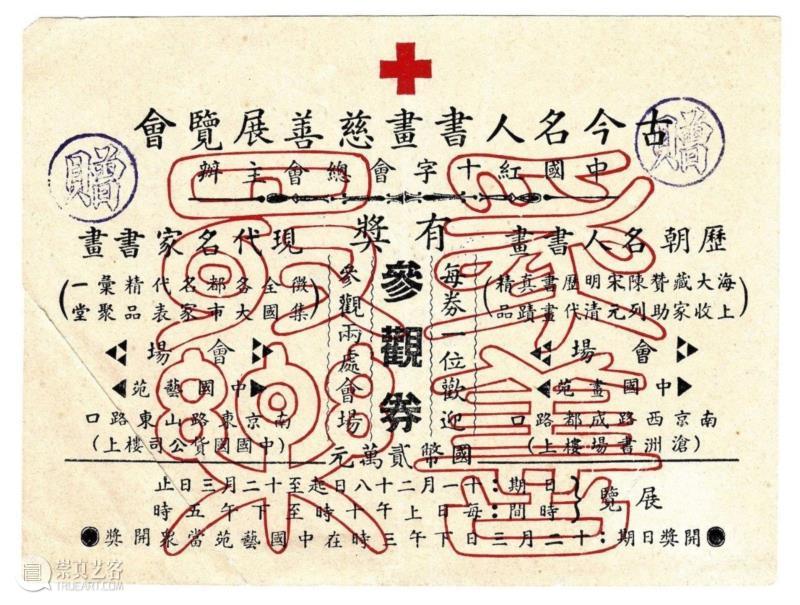 古今名人書畫慈善展覽會
贈
贈
中國紅十字會總會主辦
為善最樂
有獎
參觀券
每券一位歡迎
參觀兩處會場
歷朝名人書畫
(海上大收藏家贊助陳列宋元明清歷代書畫真蹟精品)
會場
中國畫苑
南京西路成都路口
(滄洲書場樓上)
現代名家書畫
(徵集全國各大都市名家代表精品彙聚一堂)
會場
中國藝苑
南京東路山東路口
(中國國貨公司樓上)
國幣貳萬元
展覽
日期:十一月二十八日起至十二月三日止
時間:每日上午十時至下午五時
開獎日期:十二月三日下午三時在中國藝苑當眾開獎
崇真艺客
TRUEART.COM